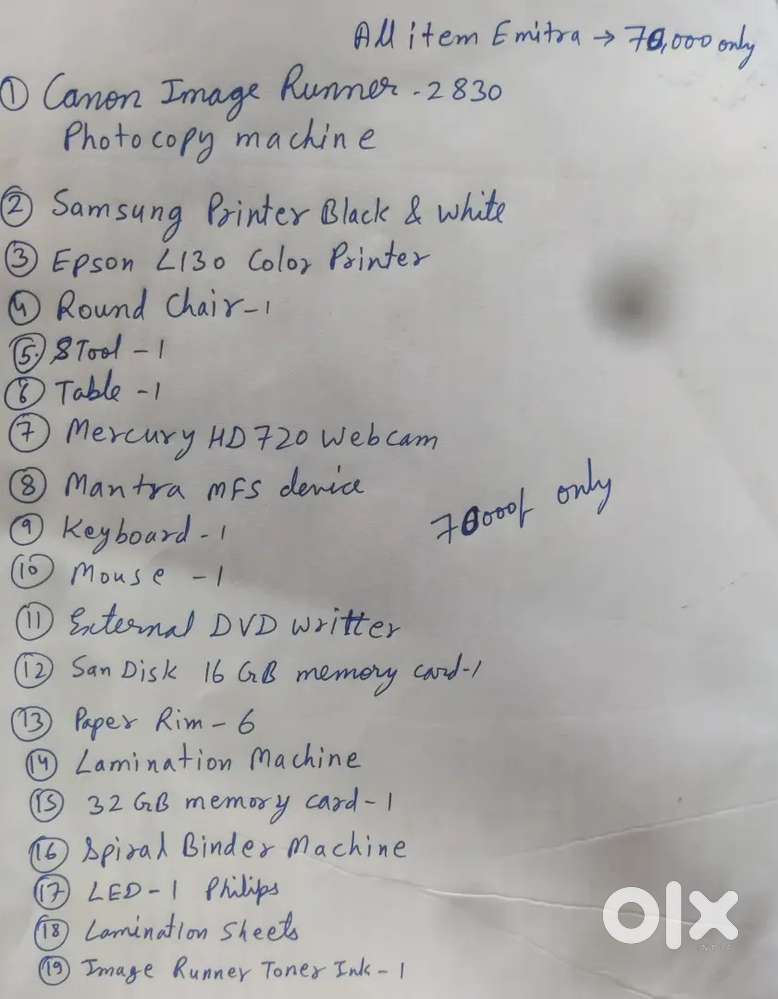 All item Emitra → 70,000 only
① Canon Image Runner - 2830
Photocopy machine
② Samsung Printer Black & white
③ Epson L130 Color Printer
④ Round Chair - 1
⑤ STool - 1
⑥ Table - 1
⑦ Mercury HD720 Webcam
⑧ Mantra MFS device
70000/ only
⑨ Keyboard - 1
⑩ Mouse - 1
⑪ External DVD writter
⑫ SanDisk 16 GB memory card - 1
⑬ Paper Rim - 6
⑭ Lamination Machine
⑮ 32 GB memory card - 1
⑯ Spiral Binder Machine
⑰ LED - 1 Philips
⑱ Lamination Sheets
⑲ Image Runner Toner Ink - 1
olx